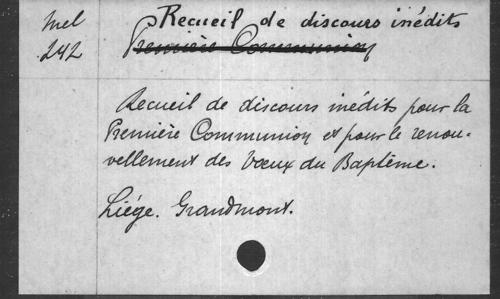 Mel
242
Recueil de discours inédits
Première Communion
Recueil de discours inédits pour la
Première Communion et pour le renou-
vellement des Vœux du Baptême.
Liége. Grandmont.